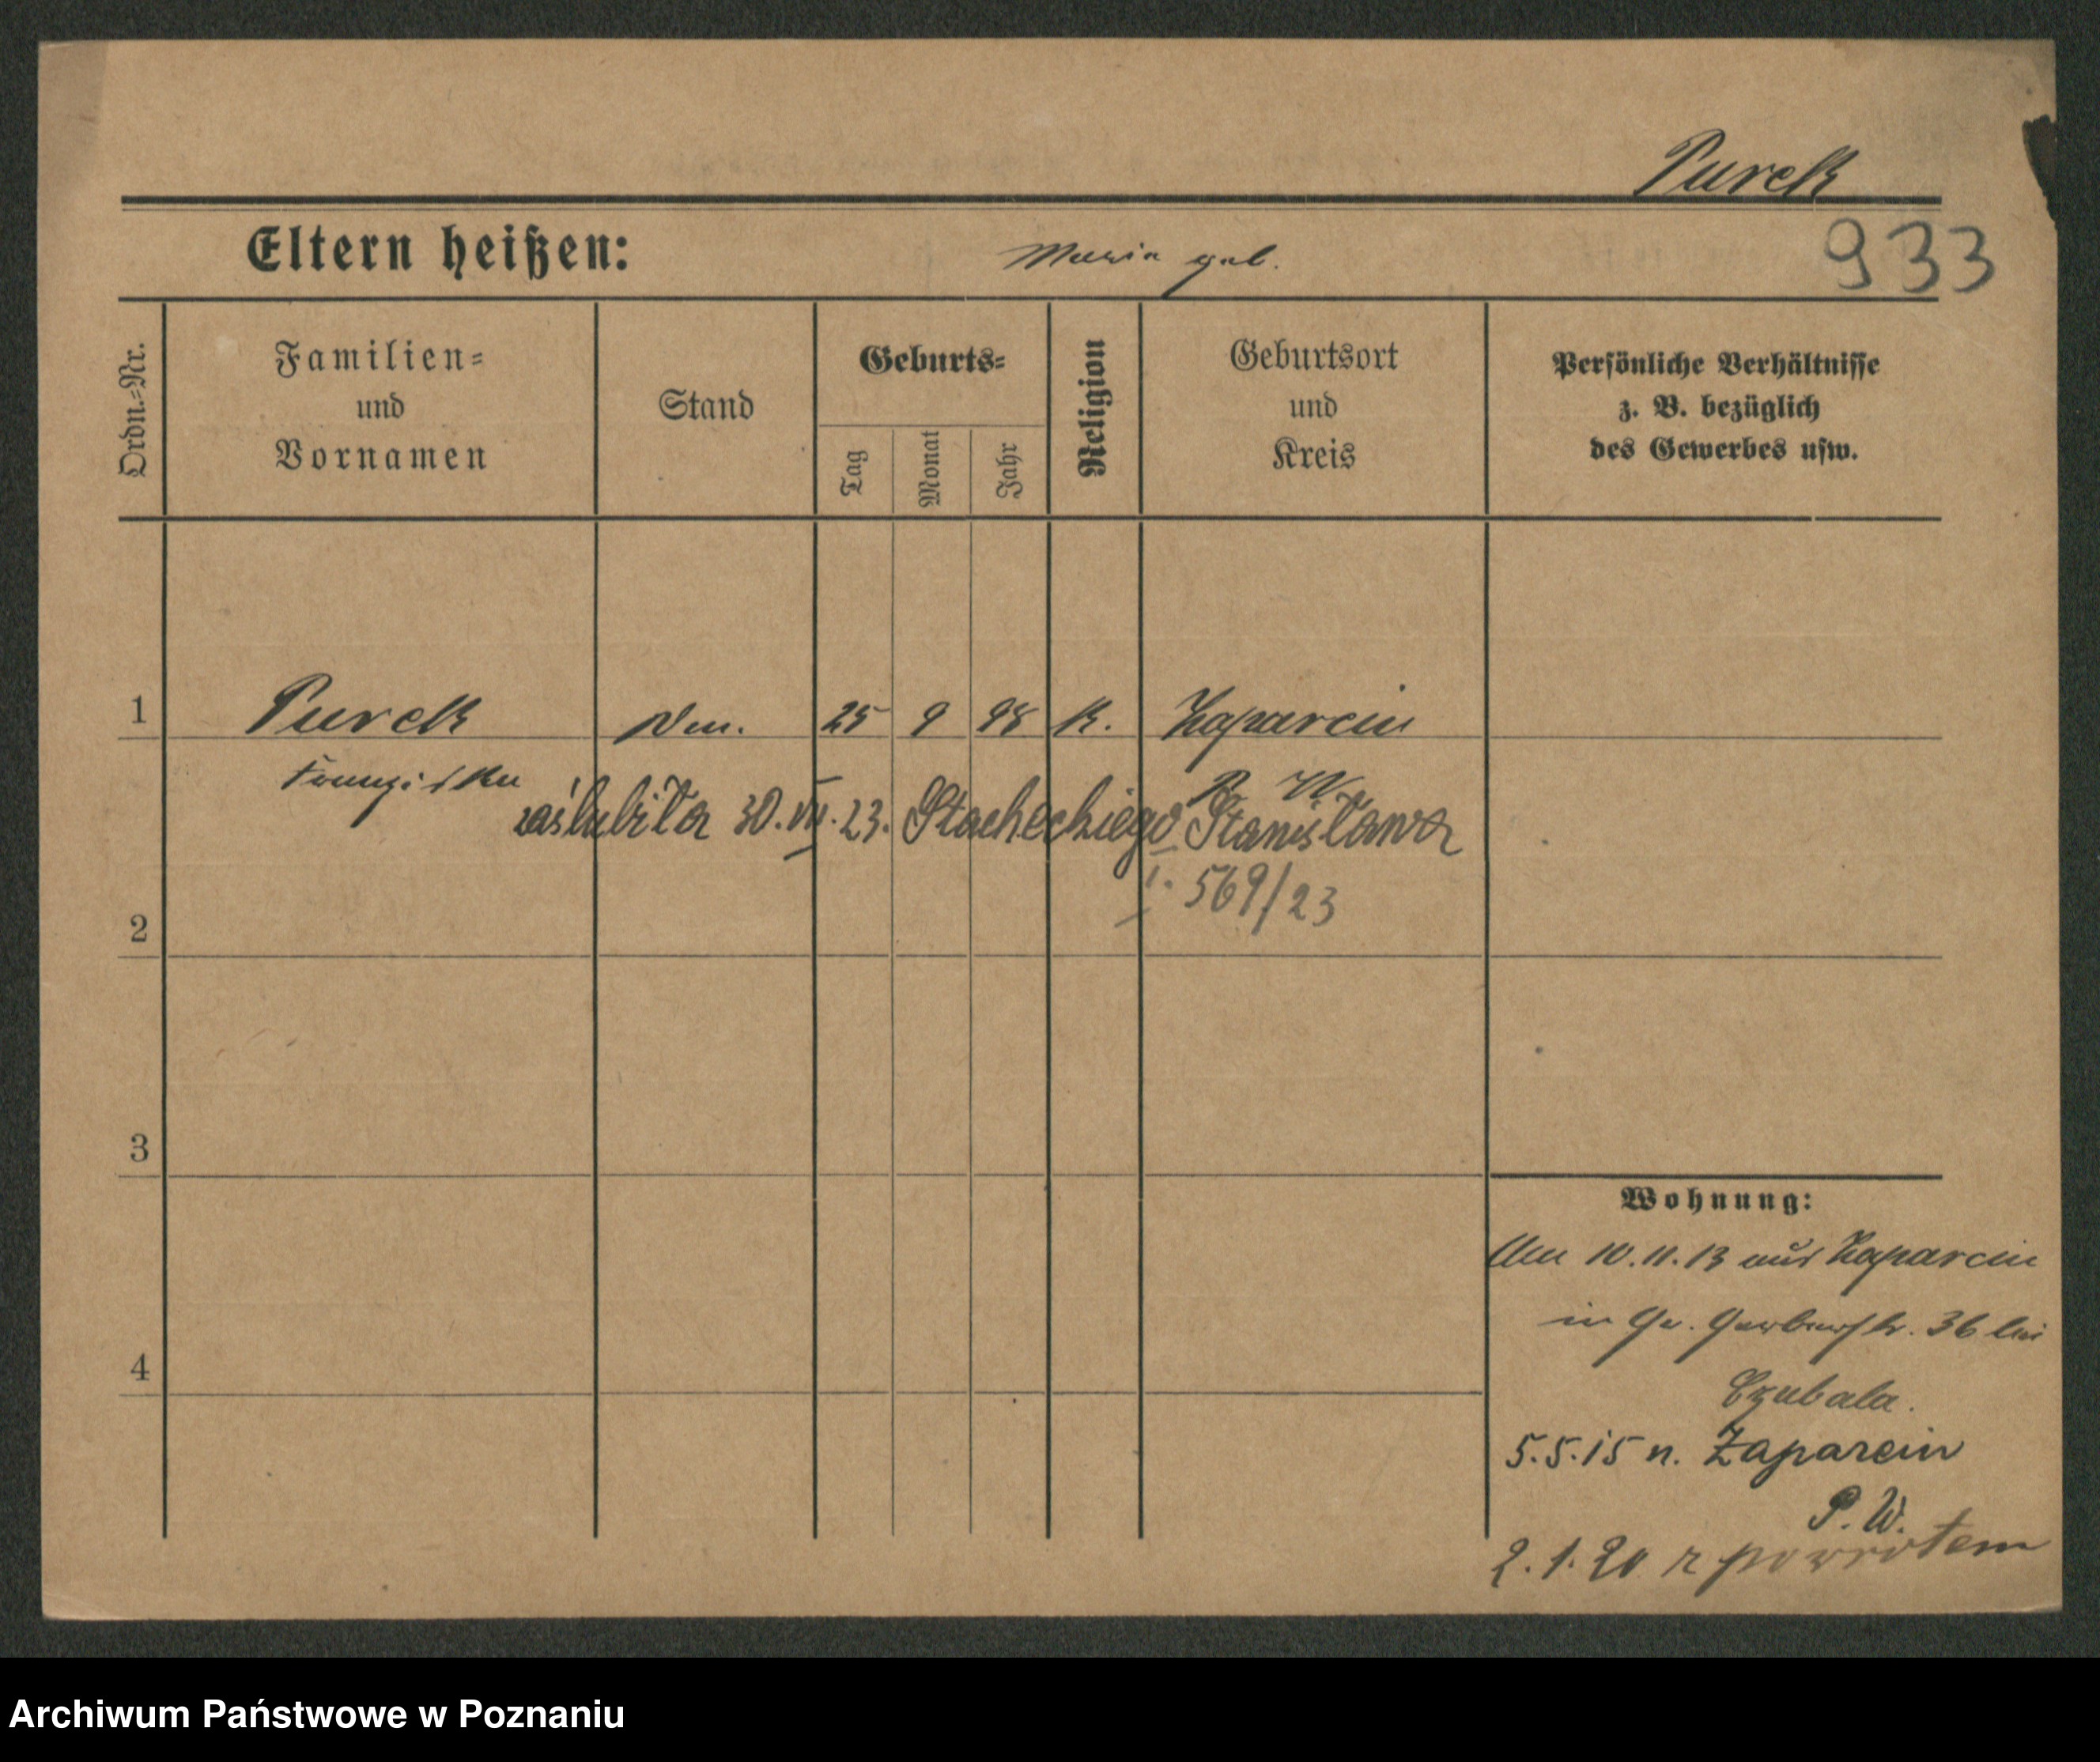 Purek
Eltern heißen: Maria geb. 933
Ordn.-Nr.
Familien-
und
Vornamen
Stand
Geburts-
Tag
Monat
Jahr
Religion
Geburtsort
und
Kreis
Persönliche Verhältnisse
z. B. bezüglich
des Gewerbes usw.
1 Purek 25 9 98 K. Zaparcin
Franziska P. W.
zaślubiła 30.VII.23. Stacheckiego Stanisława
I. 569/23
2
3
4
Wohnung:
10.11.13 aus Zaparcin
in Gr. Gerberstr. 36 bei
Czubala.
5.5.15 n. Zaparcin
P. W.
2.1.20 z powrotem
Archiwum Państwowe w Poznaniu